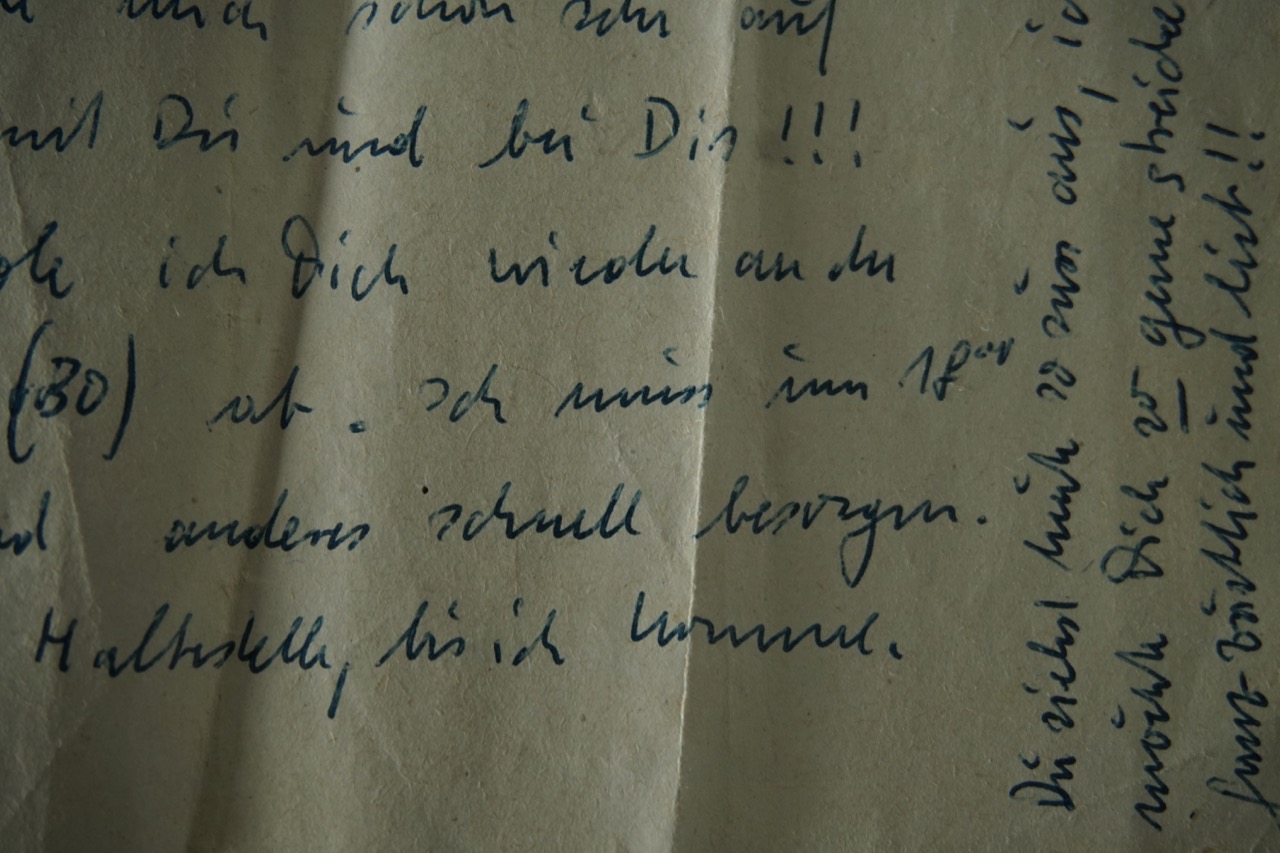 mich schon sehr auf
mit Dir und bei Dir!!!
ich Dich wieder an der
(30) ab. Ich muss um 18⁰⁰
anderes schnell besorgen.
Haltestelle, bis ich komme.
Du siehst heute so süss aus,
möchte Dich so gerne streiche
ganz zärtlich und lieb!!